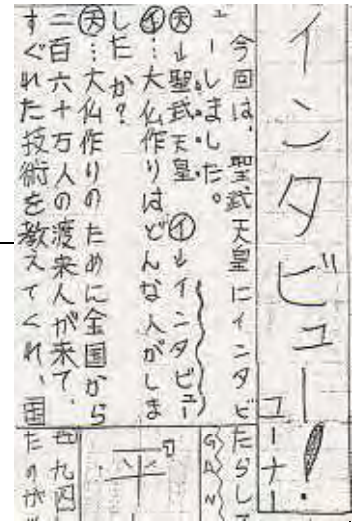 インタビュー!
今回は、聖武天皇にインタビ
ューしました。
天→聖武天皇 イ→インタビュー
イ…大仏作りはどんな人がしま
したか?
天…大仏作りのために全国から
二百六十万人の渡来人が来て、
すぐれた技術を教えてくれ、